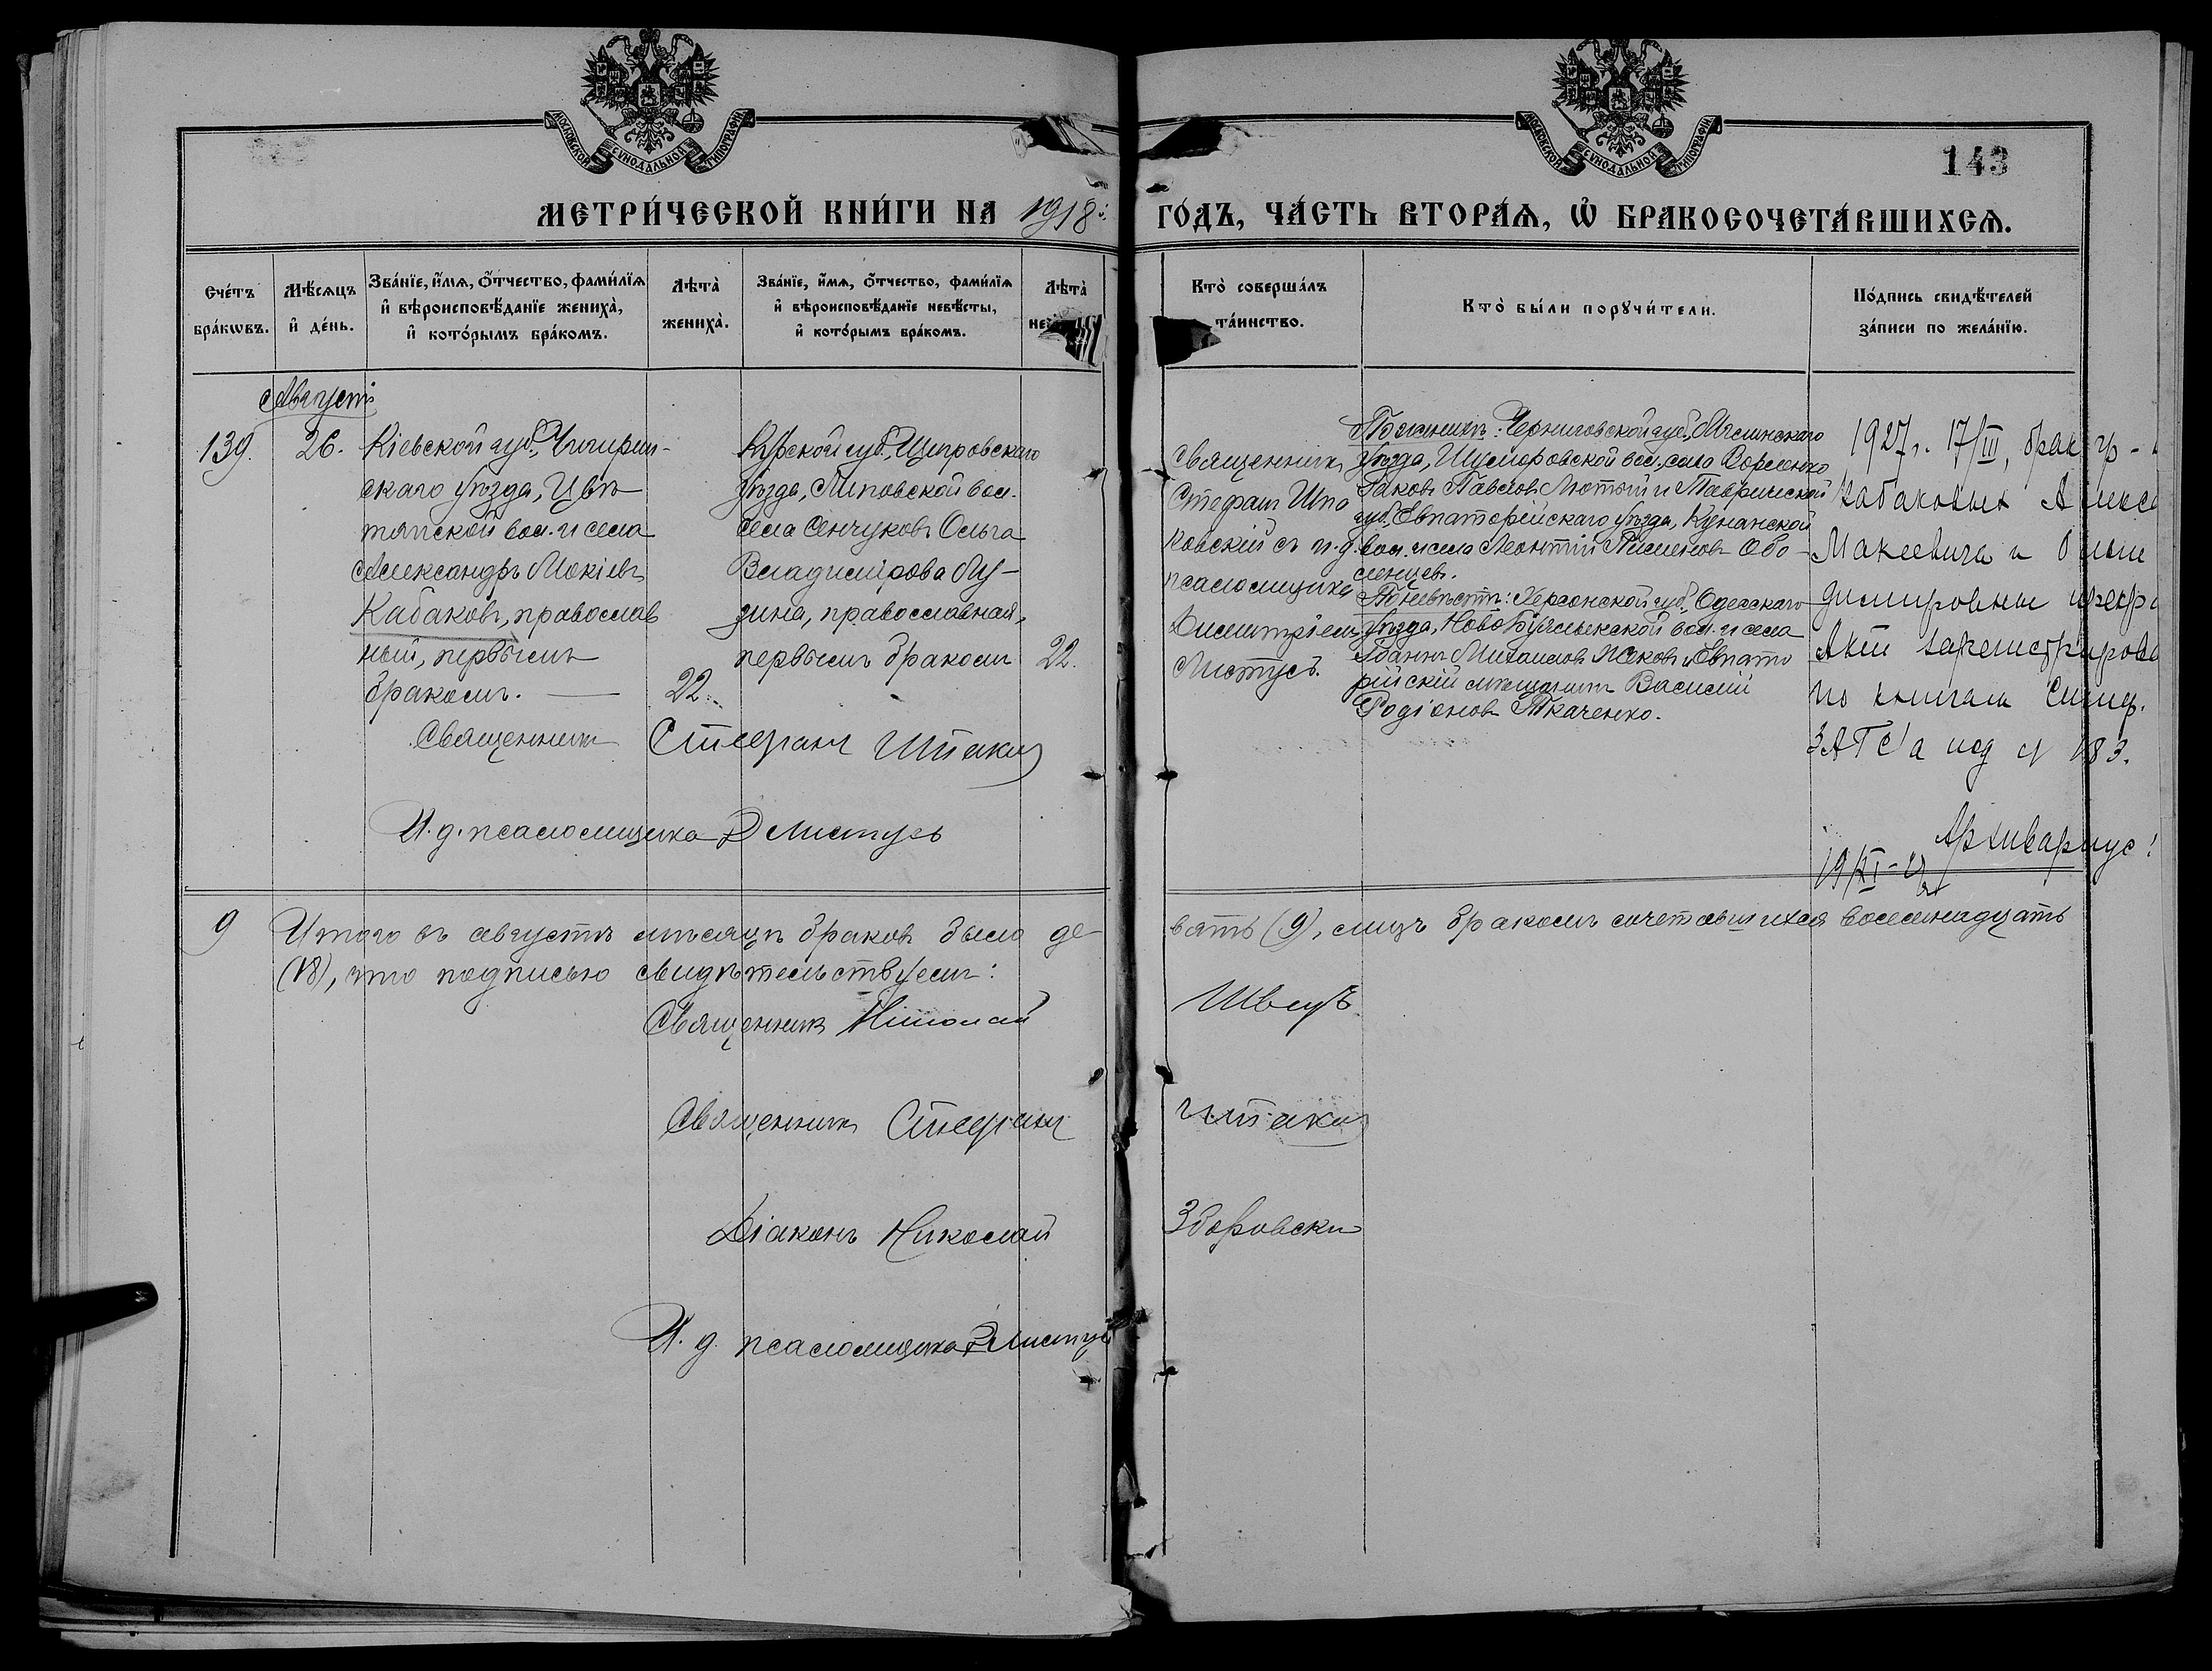 МОСКОВСКОЙ СѴНОДАЛЬНОЙ ТИПОГРАФІИ
МОСКОВСКОЙ СѴНОДАЛЬНОЙ ТИПОГРАФІИ
143
МЕТРИ́ЧЕСКОЙ КНИ́ГИ НА 1918 й ГО́ДЪ, ЧА́СТЬ ВТОРА́Ѧ, Ѡ҆ БРАКОСОЧЕТА́ВШИХСѦ.
Сче́тъ бра́кѡвъ.
Мѣ́сѧцъ и҆ де́нь.
Зва́нїе, и҆́мѧ, ѻ҆́тчество, фами́лїѧ
и҆ вѣроисповѣ́данїе жениха̀,
и҆ кото́рымъ бра́комъ.
Лѣта̀ жениха̀.
Зва́нїе, и҆́мѧ, ѻ҆́тчество, фами́лїѧ
и҆ вѣроисповѣ́данїе невѣ́сты,
и҆ кото́рымъ бра́комъ.
Лѣта̀
Кто̀ соверша́лъ та́инство.
Кто̀ бы́ли порꙋчи́тели.
По́дпись свидѣ́телей
за́писи по жела́нїю.
Августъ
139. 26.
Кіевской губ., Чигирин-
скаго уѣзда, Цвѣ
тянской вол. и села
Александръ Мокіевъ
Кабаковъ, православ
ный, первымъ
бракомъ. — 22.
Курской губ., Щигровскаго
уѣзда, Липовской вол.
села Сенчуковъ Ольга
Владимірова Лу-
зина, православная,
первымъ бракомъ 22.
Священникъ
Стефанъ Шпа
ковскій съ и. д.
псаломщика
Димитріемъ
Листусъ.
По женихѣ: Черниговской губ., Мглинскаго
уѣзда, Шуморовской вол., села
Іаковъ Павловъ Лютый и Таврической
губ., Евпаторійскаго уѣзда, Кунанской
вол. и села Леонтій Пименовъ Обо-
ленцевъ.
По невѣстѣ: Херсонской губ., Одесскаго
уѣзда, Ново вол. и села
Іоаннъ Михаиловъ и Евпато
рійскій мѣщанинъ Василій
Родіоновъ Ткаченко.
1927 г. 17/III, брак гр-
Кабаковых Алекса
Макеевича и Ольги
димировны прекра
Акт зарегистрирова
по книгам Симф.
ЗАГС'а под № 183.
Архивариус:
Священникъ Стефанъ Шпак
И. д. псаломщика Д Листусъ
9 Итого въ августѣ мѣсяцѣ браковъ было де вять (9), лицъ бракомъ сочетавшихся восемнадцать
(18), что подписью свидѣтельствуемъ:
Священникъ Николай Швецъ
Священникъ Стефанъ Шпак
Діаконъ Николай Зборовски
И. д. псаломщика Д Листусъ